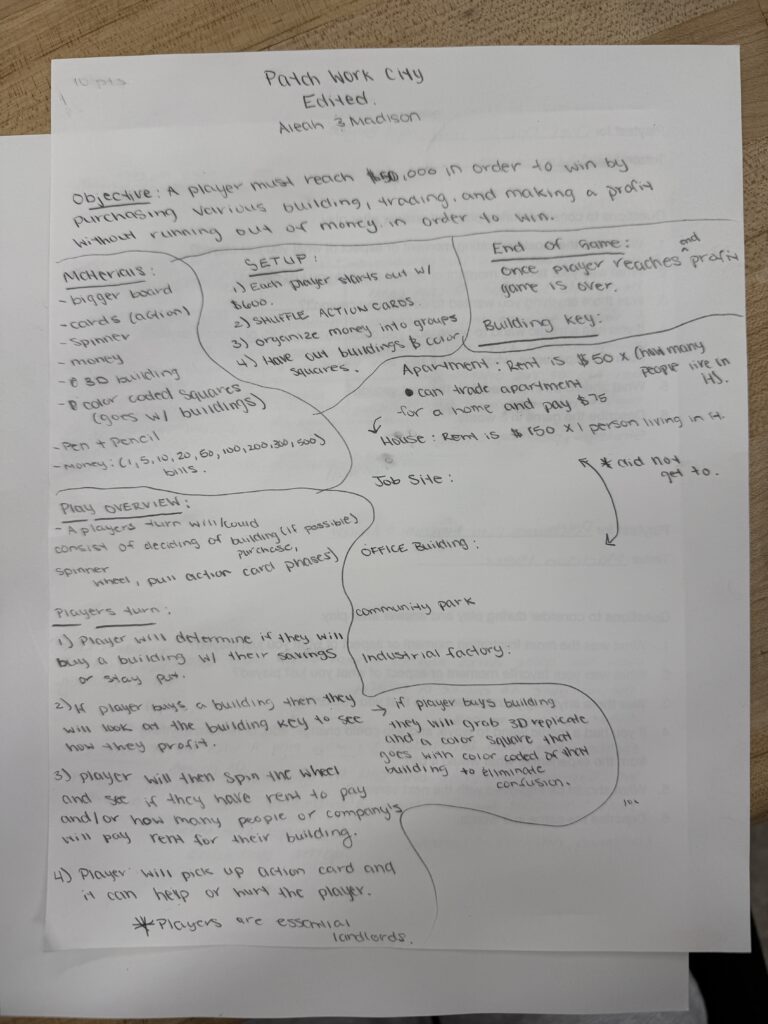 10 pts
Patch Work City
Edited.
Aleah & Madison
Objective: A player must reach $50,000 in order to win by
purchasing various building, trading, and making a profit
without running out of money in order to win.
Materials:
- bigger board
- cards (action)
- spinner
- money
- 3D building
- color coded squares
(goes w/ buildings)
- Pen + Pencil
- Money: (1, 5, 10, 20, 50, 100, 200, 300, 500)
bills.
SETUP:
1) Each player starts out w/
$600.
2) SHUFFLE ACTION CARDS
3) organize money into groups
4) Have out buildings & color
squares.
End of Game:
once player reaches end profit
game is over.
Building Key:
Apartment: Rent is $50 x (how many
people live in
it).
• can trade apartment
for a home and pay $75
House: Rent is $150 x 1 person living in it.
Job Site:
* did not
get to.
OFFICE Building:
community park
Industrial factory:
→ if player buys building
they will grab 3D replicate
and a color square that
goes with color coded of that
building to eliminate
confusion.
Play OVERVIEW:
- A players turn will/could
consist of deciding of building (if possible)
purchase,
spinner
wheel, pull action card phases)
Players turn:
1) Player will determine if they will
buy a building w/ their savings
or stay put.
2) If player buys a building then they
will look at the building key to see
how they profit.
3) player will then spin the wheel
and see if they have rent to pay
and/or how many people or company's
will pay rent for their building.
4) Player will pick up action card and
it can help or hurt the player.
* Players are essential
landlords.